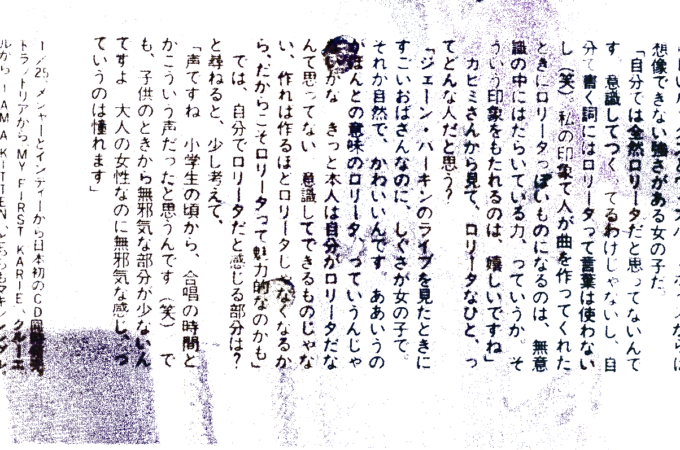 想像できない強さがある女の子だ。
「自分では全然ロリータだと思ってないんで
す。意識してつくってるわけじゃないし、自
分で書く詞にはロリータって言葉は使わない
し(笑)。私の印象で人が曲を作ってくれた
ときにロリータっぽいものになるのは、無意
識の中にはたらいている力、っていうか。そ
ういう印象をもたれるのは、嬉しいですね」
カヒミさんから見て、ロリータなひと、っ
てどんな人だと思う?
「ジェーン・バーキンのライブを見たときに
すごいおばさんなのに、しぐさが女の子で、
それが自然で、かわいいんです。ああいうの
がほんとの意味のロリータ、っていうんじゃ
ないかな。きっと本人は自分がロリータだな
んて思ってない。意識してできるものじゃな
い、作れば作るほどロリータじゃなくなるか
ら、だからこそロリータって魅力的なのかも」
では、自分でロリータだと感じる部分は?
と尋ねると、少し考えて、
「声ですね。小学生の頃から、合唱の時間と
かこういう声だったと思うんです(笑)。で
も、子供のときから無邪気な部分が少ないん
ですよ。大人の女性なのに無邪気な感じ、っ
ていうのは憧れます」
1/25、メジャーとインディーから日本初のCD
トラットリアから MY FIRST KARIE、クルーエ
ルから I AM A KITTEN